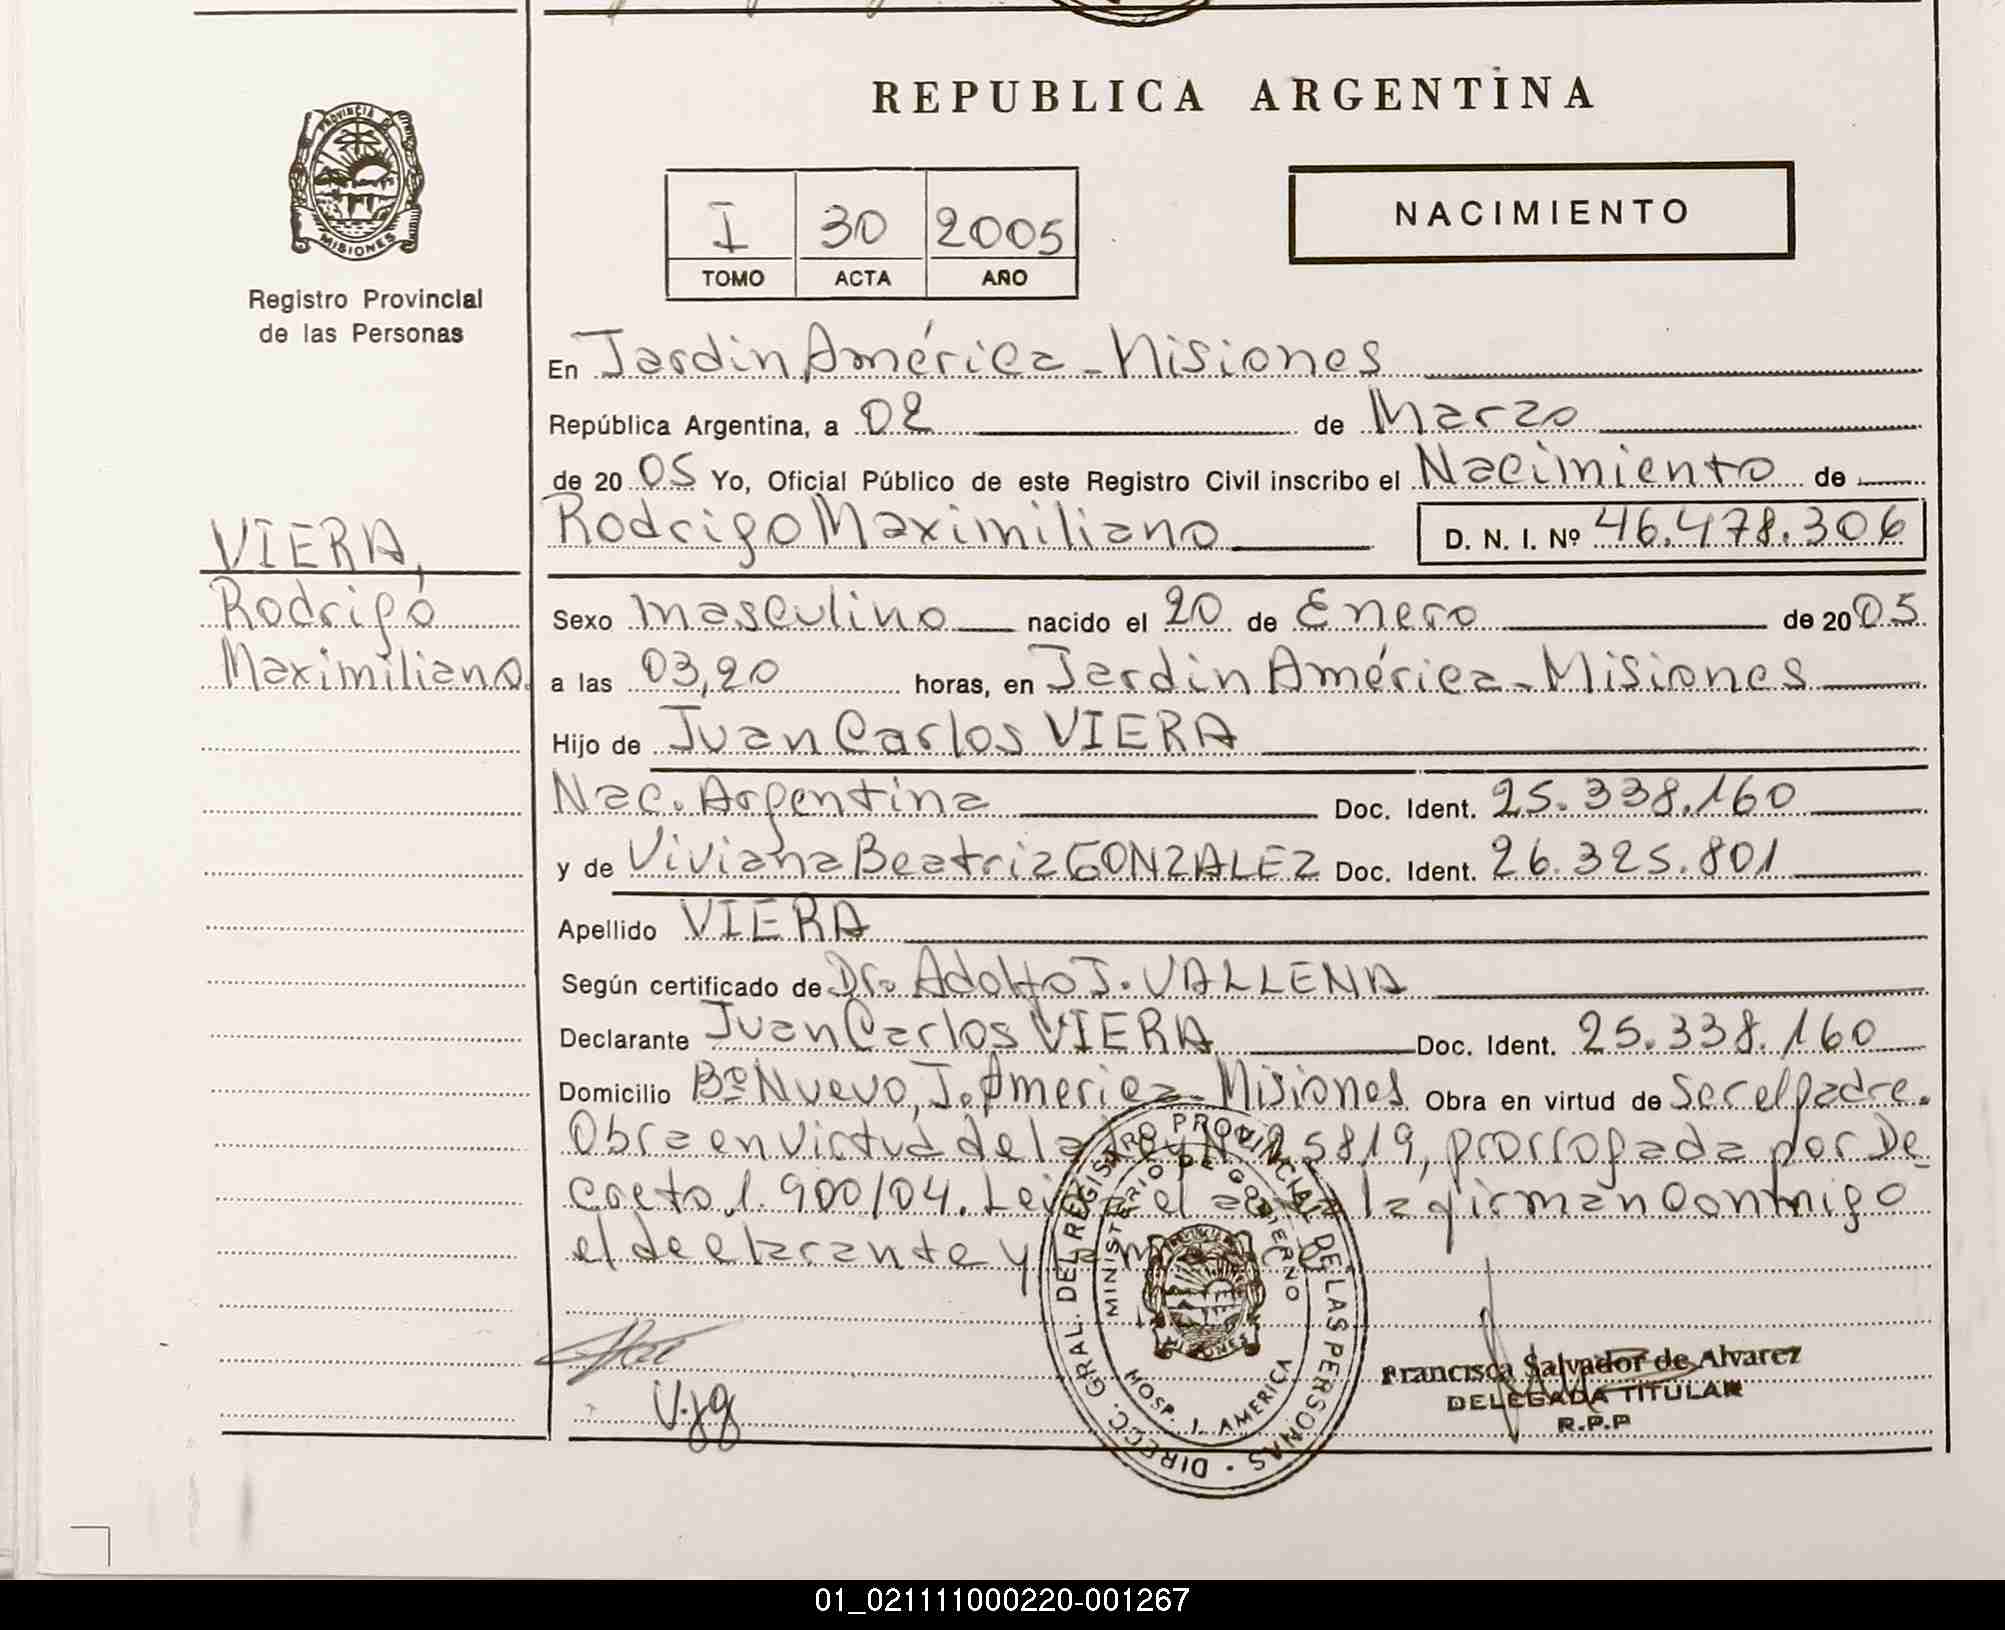 REPUBLICA ARGENTINA
PROVINCIA DE
MISIONES
Registro Provincial
de las Personas
I 30 2005
TOMO ACTA AÑO
NACIMIENTO
En Jardin América - Misiones
República Argentina, a 02 de Marzo
de 20 05 Yo, Oficial Público de este Registro Civil inscribo el Nacimiento de
Rodrigo Maximiliano D. N. I. Nº 46.478.306
VIERA,
Rodrigo
Maximiliano.
Sexo masculino nacido el 20 de Enero de 20 05
a las 03,20 horas, en Jardin América - Misiones
Hijo de Juan Carlos VIERA
Nac. Argentina Doc. Ident. 25.338.160
y de Viviana Beatriz GONZALEZ Doc. Ident. 26.325.801
Apellido VIERA
Según certificado de Dr. Adolfo J. VALLENA
Declarante Juan Carlos VIERA Doc. Ident. 25.338.160
Domicilio Bº Nuevo, J. America - Misiones Obra en virtud de ser el padre.
Obra en virtud de la Ley Nº 25819, prorrogada por De
creto 1.900/04. Leida el acta la firman conmigo
el declarante y
DIRECC. GRAL. DEL REGISTRO PROVINCIAL DE LAS PERSONAS
MINISTERIO DE GOBIERNO
MISIONES
HOSP. J. AMERICA
V.jg
Francisca Salvador de Alvarez
DELEGADA TITULAR
R.P.P
01_021111000220-001267